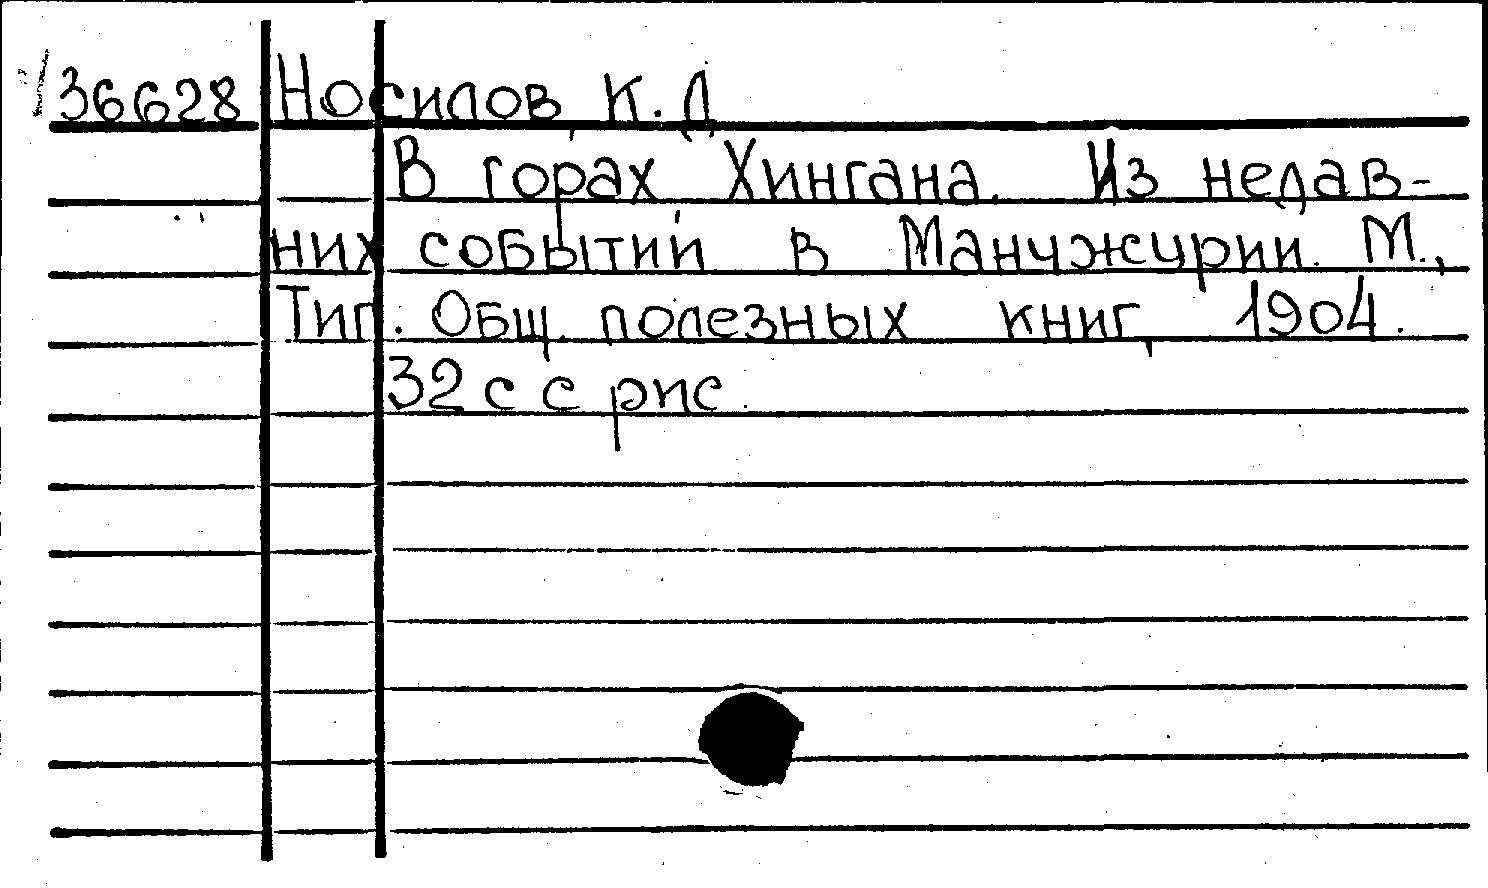 36628 Носилов, К.Д.
В горах Хингана. Из недав-
них событий в Манчжурии. М.,
Тип. Общ. полезных книг, 1904.
32 с с рис.